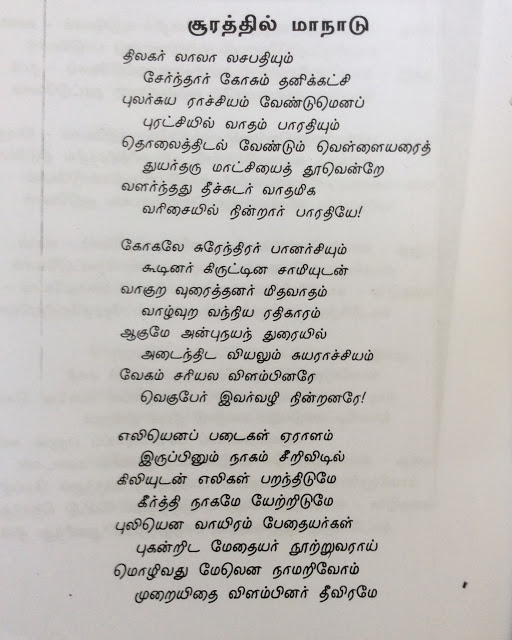 சூரத்தில் மாநாடு
திலகர் லாலா லசபதியும்
சேர்ந்தார் கோசும் தனிக்கட்சி
புலர்சுய ராச்சியம் வேண்டுமெனப்
புரட்சியில் வாதம் பாரதியும்
தொலைத்திடல் வேண்டும் வெள்ளையரைத்
துயர்தரு மாட்சியைத் தூவென்றே
வளர்ந்தது தீச்சுடர் வாதமிக
வரிசையில் நின்றார் பாரதியே!
கோகலே சுரேந்திரர் பானர்சியும்
கூடினர் கிருட்டின சாமியுடன்
வாகுற வுரைத்தனர் மிதவாதம்
வாழ்வுற வந்நிய ரதிகாரம்
ஆகுமே அன்புநயந் துரையில்
அடைந்திட வியலும் சுயராச்சியம்
வேகம் சரியல விளம்பினரே
வெகுபேர் இவர்வழி நின்றனரே!
எலியெனப் படைகள் ஏராளம்
இருப்பினும் நாகம் சீறிவிடில்
கிலியுடன் எலிகள் பறந்திடுமே
கீர்த்தி நாகமே யேற்றிடுமே
புலியென வாயிரம் பேதையர்கள்
புகன்றிட மேதையர் நூற்றுவராய்
மொழிவது மேலென நாமறிவோம்
முறையிதை விளம்பினர் தீவிரமே